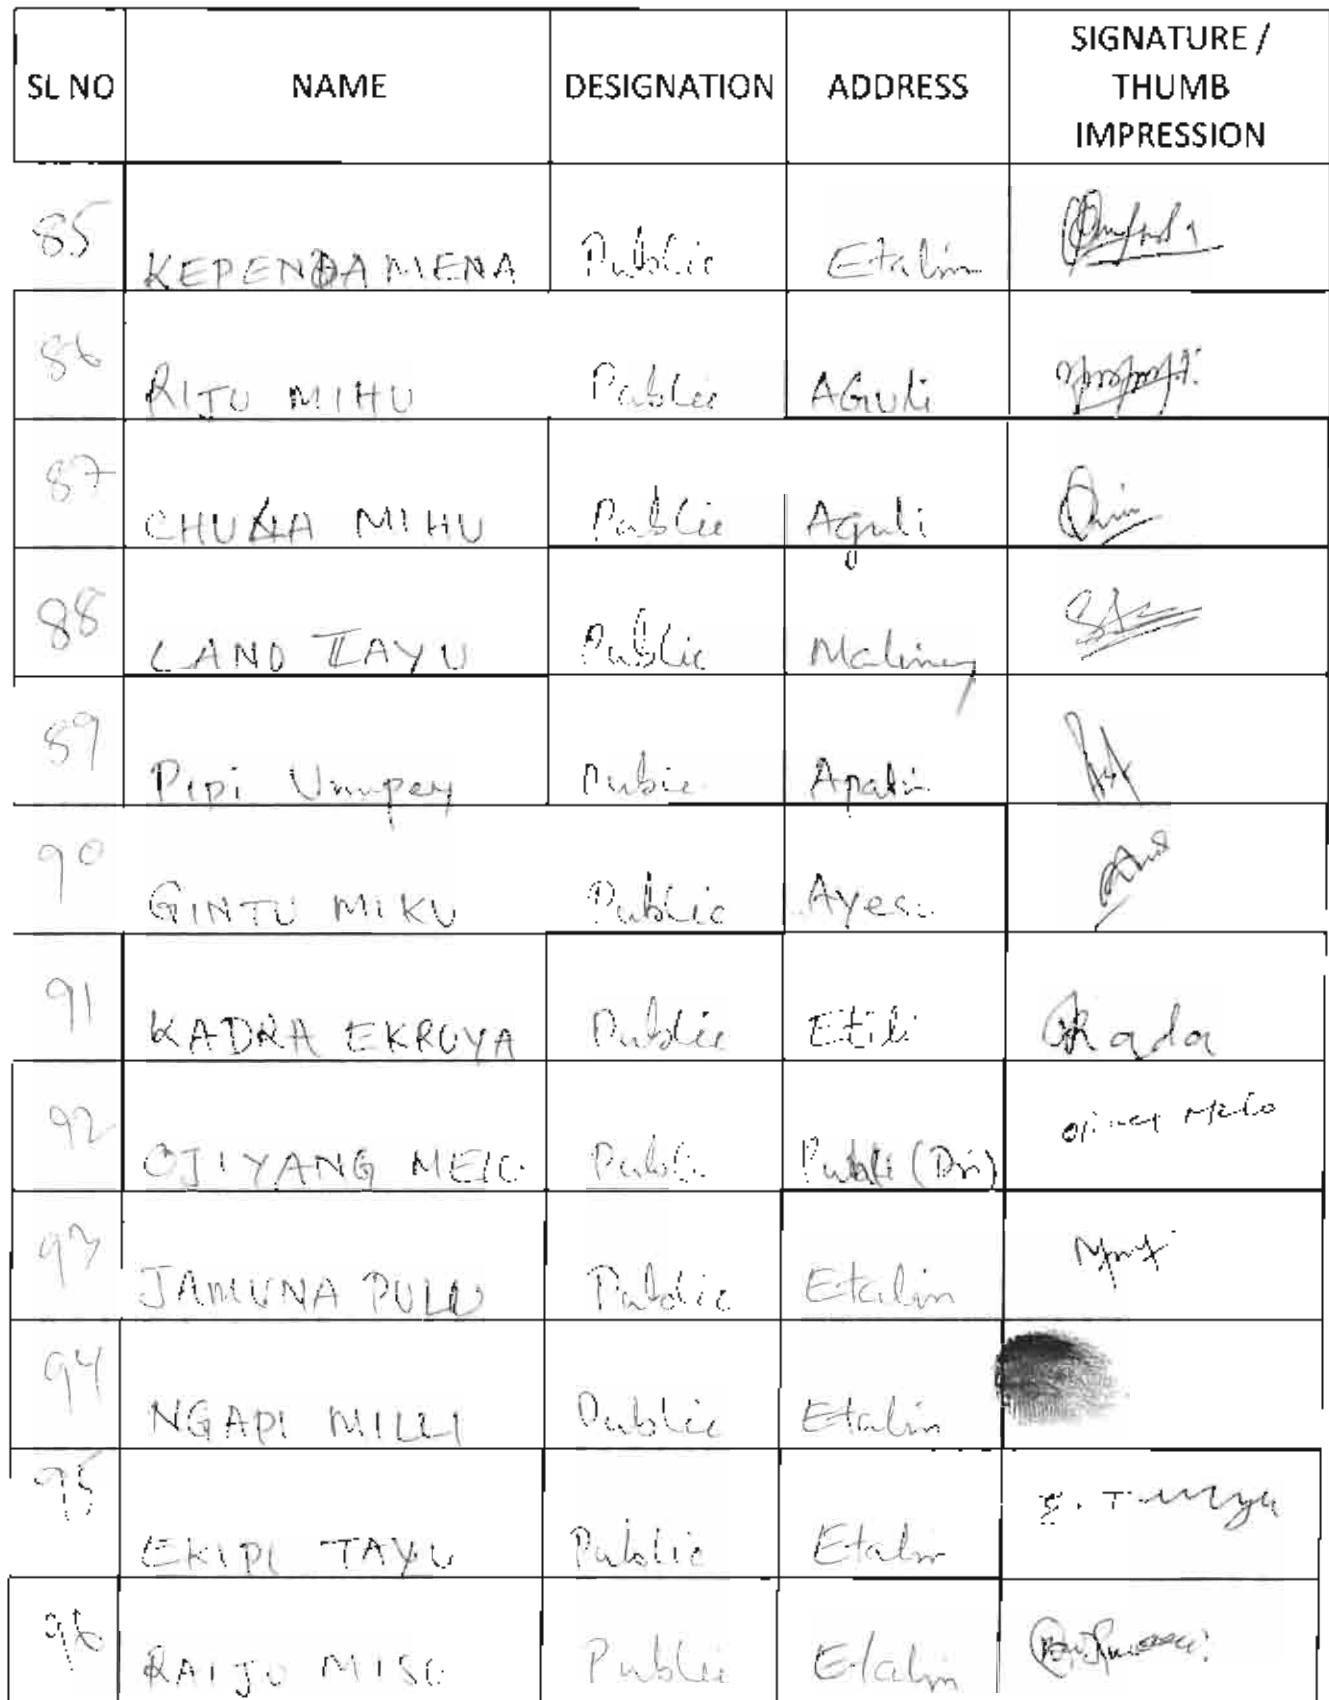 SL NO NAME DESIGNATION ADDRESS SIGNATURE / THUMB IMPRESSION
85 KEPENDA MENA Public Etalin
86 RIJU MIHU Public AGuli
87 CHUNA MIHU Public Aguli
88 LANO TAYU Public Maliney
89 Pipi Umpey Pubic Apalin
90 GINTU MIKU Public
91 KADRA EKRUYA Public Etili
92 OJIYANG Public (Dri)
93 JAMUNA PULU Public Etalin
94 NGAPI MILLI Public Etalin
95 EKIPI TAYU Public Etalin
96 RAIJU MISO Public Etalin